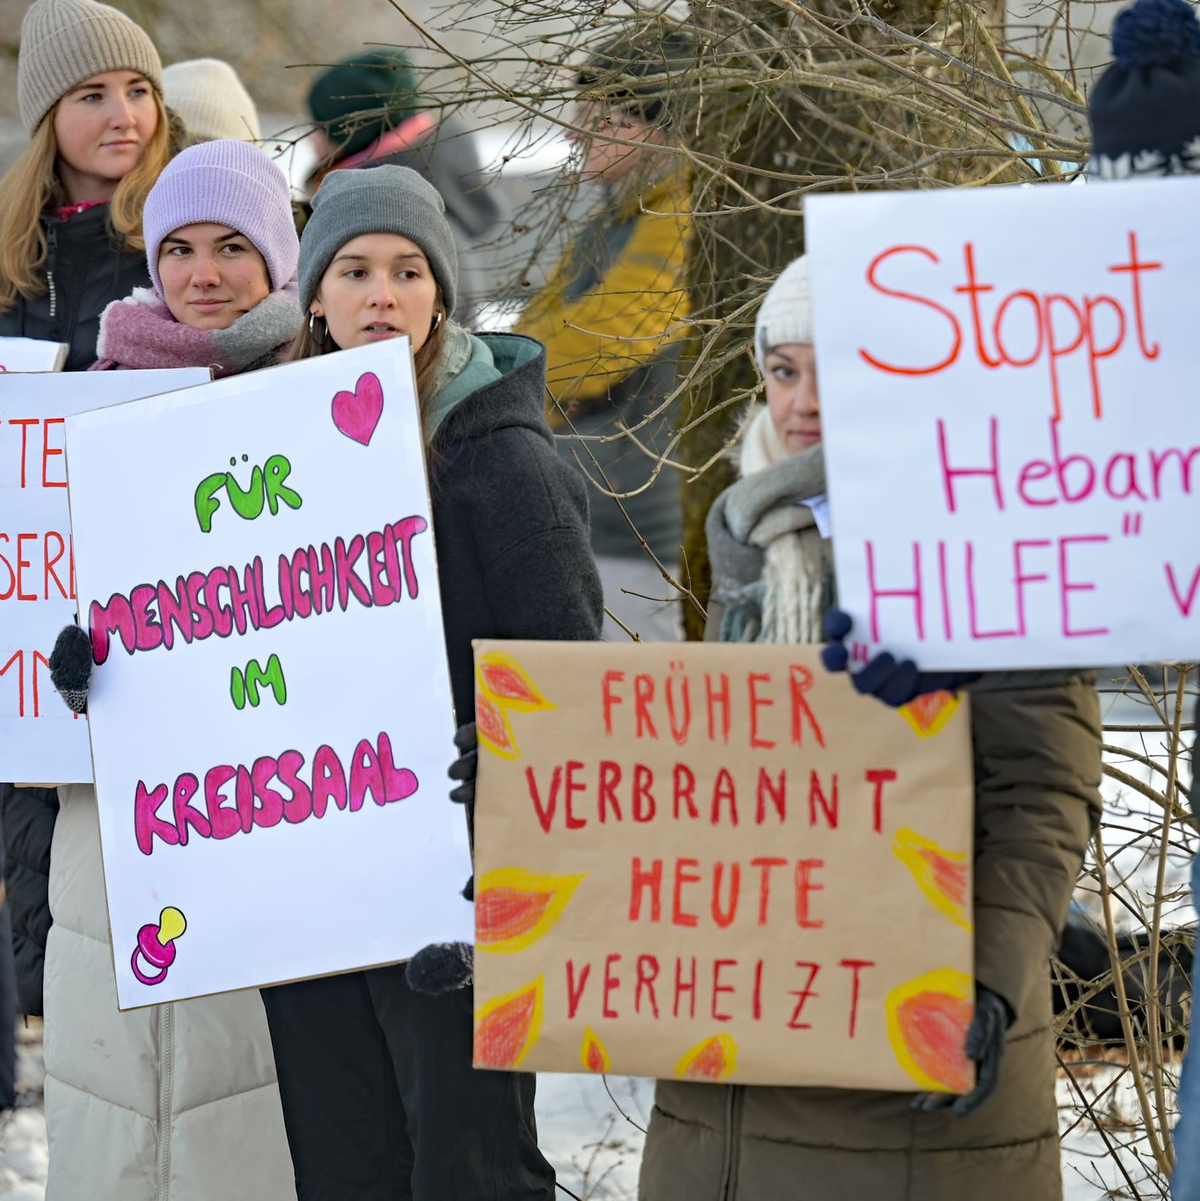 TE
SERE
MM
FÜR
MENSCHLICHKEIT
IM
KREISSAAL
FRÜHER
VERBRANNT
HEUTE
VERHEIZT
Stoppt
Hebam
"HILFE" v